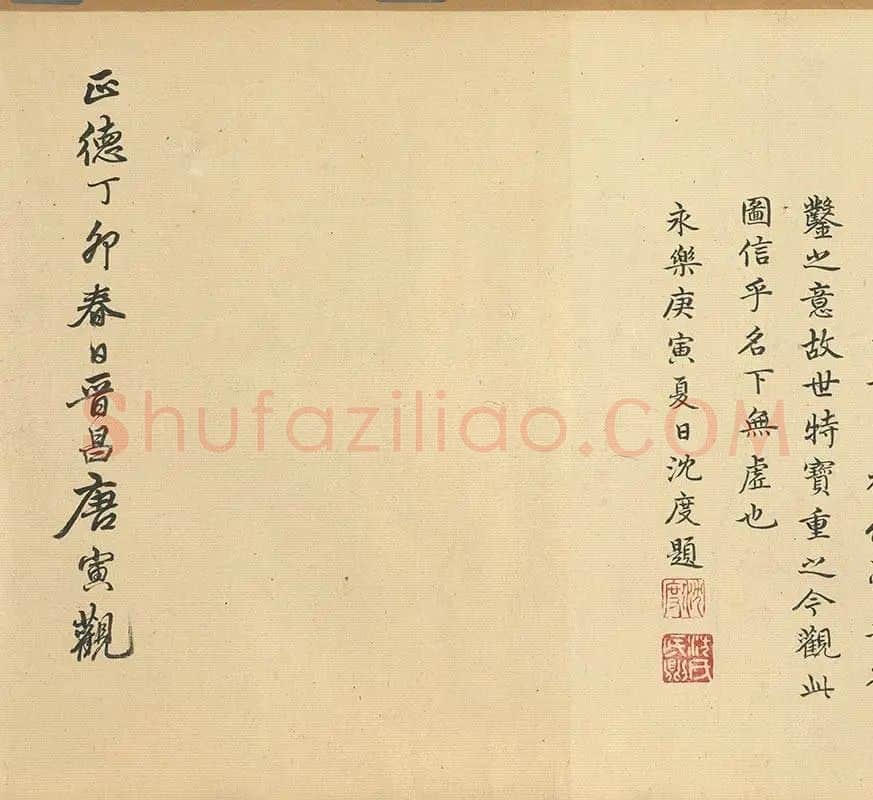 鑿之意故世特寶重之今觀此
圖信乎名下無虛也
永樂庚寅夏日沈度題
沈度
沈氏民則
正德丁卯春日晉昌唐寅觀
Shufaziliao.COM